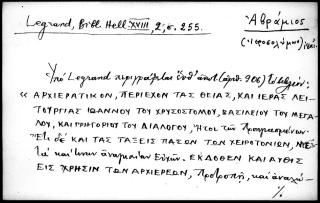 Legrand, Bibl. Hell. XVIII, 2, σ. 255.
Ἀβράμιος
(Ἱεροσολύμων)
Ὑπὸ Legrand περιγράφεται ὑπ' ἀριθ. 906) τὸ βιβλίον:
« ΑΡΧΙΕΡΑΤΙΚΟΝ, ΠΕΡΙΕΧΟΝ ΤΑΣ ΘΕΙΑΣ, ΚΑΙ ΙΕΡΑΣ ΛΕΙ-
ΤΟΥΡΓΙΑΣ ΙΩΑΝΝΟΥ ΤΟΥ ΧΡΥΣΟΣΤΟΜΟΥ, ΒΑΣΙΛΕΙΟΥ ΤΟΥ ΜΕΓΑ-
ΛΟΥ, ΚΑΙ ΓΡΗΓΟΡΙΟΥ ΤΟΥ ΔΙΑΛΟΓΟΥ, Ἤτοι τῶν Προηγιασμένων.
Ἔτι δὲ ΚΑΙ ΤΑΣ ΤΑΞΕΙΣ ΠΑΣΩΝ ΤΩΝ ΧΕΙΡΟΤΟΝΙΩΝ, ΜΕ-
τὰ καί τινων ἀναγκαίων Εὐχῶν. ΕΚΔΟΘΕΝ ΚΑΙ ΑΥΘΙΣ
ΕΙΣ ΧΡΗΣΙΝ ΤΩΝ ΑΡΧΙΕΡΕΩΝ, Προτροπῇ, καὶ ἀναλώ-
%